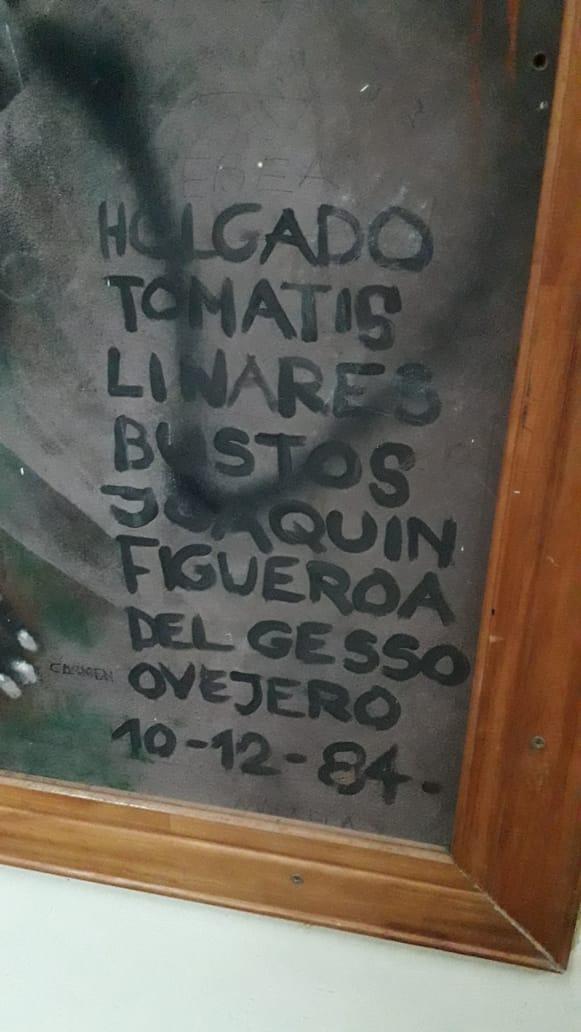 HOLGADO
TOMATIS
LINARES
BUSTOS
JOAQUIN
FIGUEROA
DEL GESSO
CARMEN OVEJERO
10-12-84.